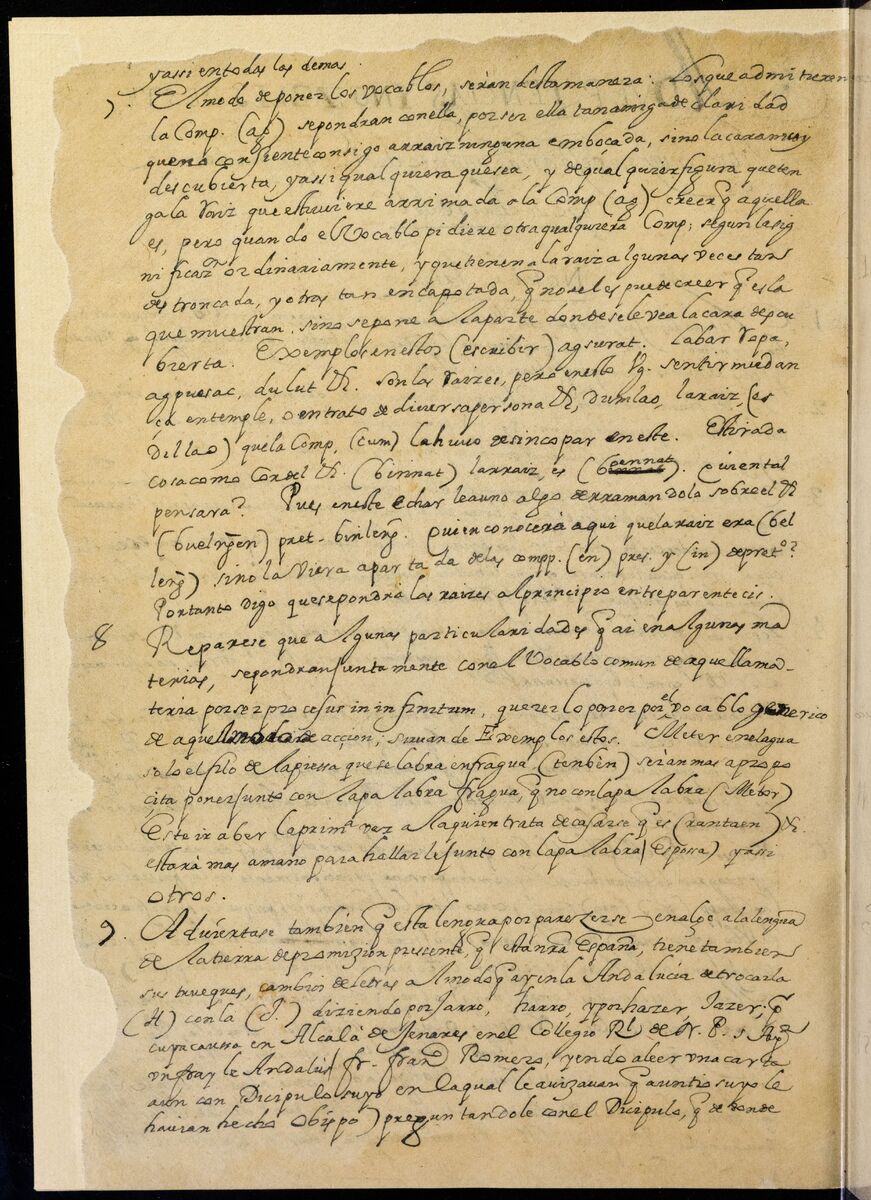 yassi en todas las demas.
7. El modo de poner los vocablos, seràn desta manera: Los que admitieren
la Comp. (ag) se pondran con ella, por ser ella tan amiga de claridad
que no consiente consigo a rraiz ninguna embocada, sino la cara muy
descubierta, y assi qual quiera que sea, y de qual quier figura que ten
ga la raiz que estuviere arrimada a la Comp (ag) creer q̃ aquella
es, pero quando el Vocablo pidiere otra qualquiera Comp; segun la sig
nificaz.on ordinariamente, y que tienen a la raiz algunas veces tan
destroncada, y otras tan encapotada, q̃ no se les puede creer q̃ es la
que muestran. sino se pone a la parte donde se le vea la cara descu
bierta. Exemplos en estos (escribir) agsurat. Labar ropa,
agpuesac, dulut &. son las raizes, pero en esto Vg. sentir mudan
ça en temple, o en trato de diversa persona &, Dumlao, la raiz, (es
dillao) que la Comp, (cum) la huvo de sincopar en este. Estirada
cosa como Cordel &. (binnat) la rraiz, es (bennat). quien tal
pensara? Pues en este echar le a uno algo derramandolo sobre el &
(buelnḡen) pret- binlenḡ. quien conocerà aqui que la raiz era (bel
lenḡ) sino la viera apartada de las compp. (en) pres. y (in) de pret.o?
Portanto digo que se pondrà las raizes al principio entre parentecis.
8 Reparese que algunas particularidades q̃ ai en algunas ma
terias, se pondran juntamente con el Vocablo comun de aquella ma-
teria por ser processus in infinitum, querer lo poner por el vocablo generico
de aquella accion; sirvan de Exemplos estos. Meter en el agua
solo el filo de la piessa que se labra en fragua (tenbin) serà mas apropo
çito poner junto con la palabra fragua q̃ no con la palabra (Meter)
Este ir a ber la prim.a vez a la quien trata de casarse q̃ es (rantaen) &.
estarà mas a mano para hallarle junto con la palabra (Esposa) y assi
otros.
9. Adviertase tambien q̃ esta lengua por parezerse en algo a la lengua
de la tierra de promizion presente, q̃ està nrã España, tiene tambien
sus trueques, cambios de letras al modo q̃ ay en la Andalucia de trocar la
(H) con la (J.) diziendo por jarro, harro, y por hazer, Jazer; q̃
cuya causa en Alcalà de Henares en el Collegio Rl de N. P. S Agn
un frayle Andalus (fr. franco Romero, yendo a leer una carta
a un con Dicipulo suyo en la qual le avizavan q̃ a un tio suyo le
havian hecho Obispo) preguntandole con el Dicipulo, q̃ de donde